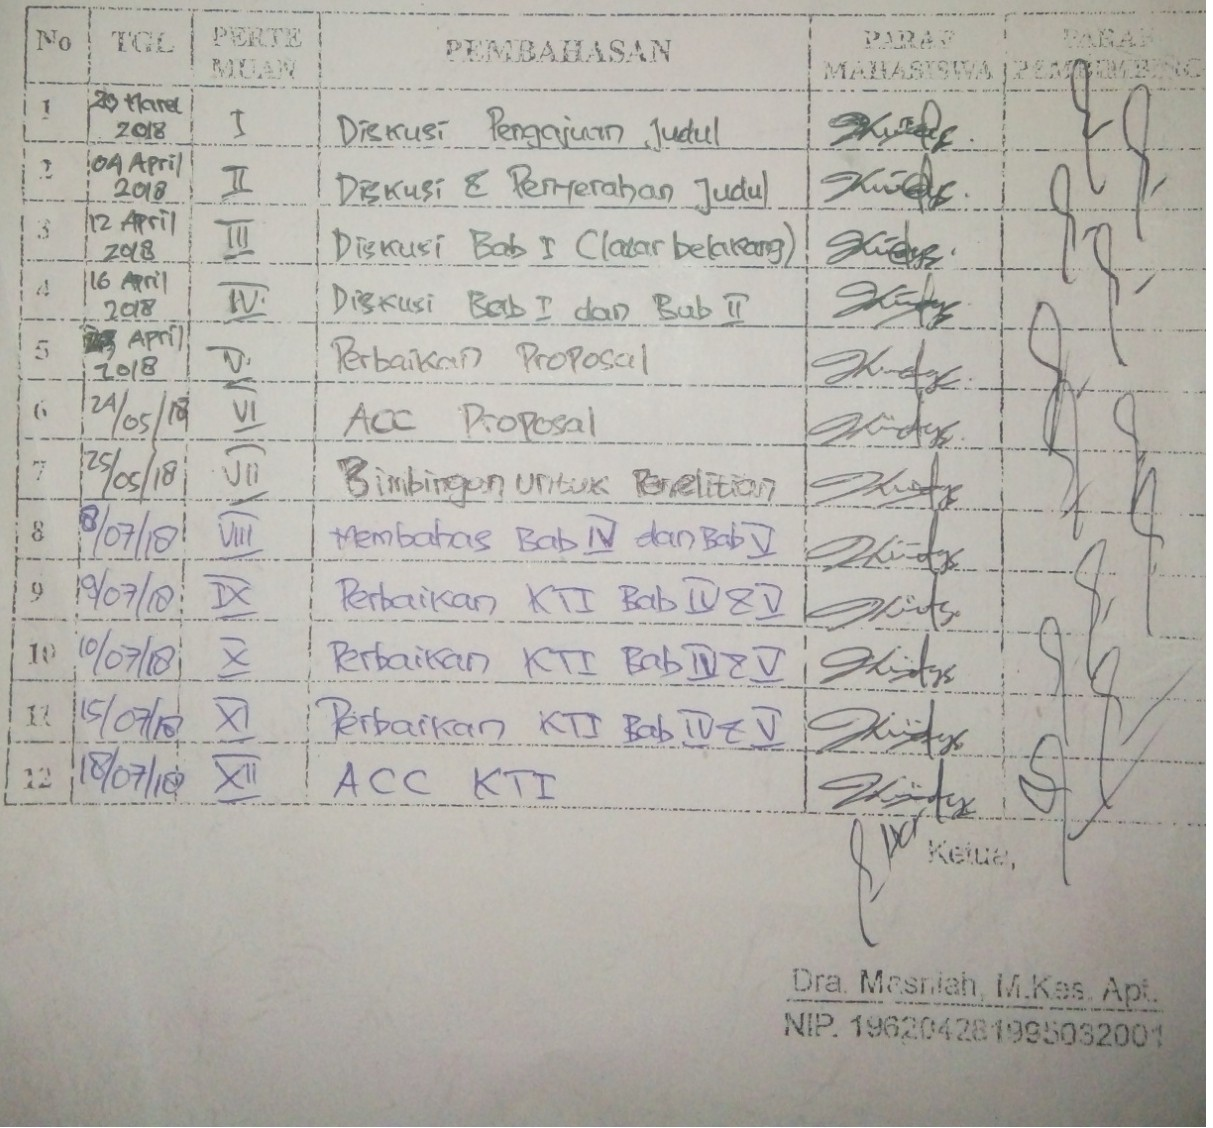 No TGL PERTE MUAN PEMBAHASAN PARAF MAHASISWA PARAF PEMBIMBING
1 Maret 2018 I Diskusi Pengajuan Judul
2 04 April 2018 II Diskusi & Penyerahan Judul
3 12 April 2018 III Diskusi Bab I (latar belakang)
4 16 April 2018 IV Diskusi Bab I dan Bab II
5 April 2018 V Perbaikan Proposal
6 24/05/18 VI ACC Proposal
7 25/05/18 VII Bimbingan untuk Penelitian
8 8/07/18 VIII Membahas Bab IV dan Bab V
9 9/07/18 IX Perbaikan KTI Bab IV & V
10 10/07/18 X Perbaikan KTI Bab IV & V
11 15/07/18 XI Perbaikan KTI Bab IV & V
12 18/07/18 XII ACC KTI
Ketua,
Dra. Masniah, M.Kes. Apt.
NIP. 196204281995032001